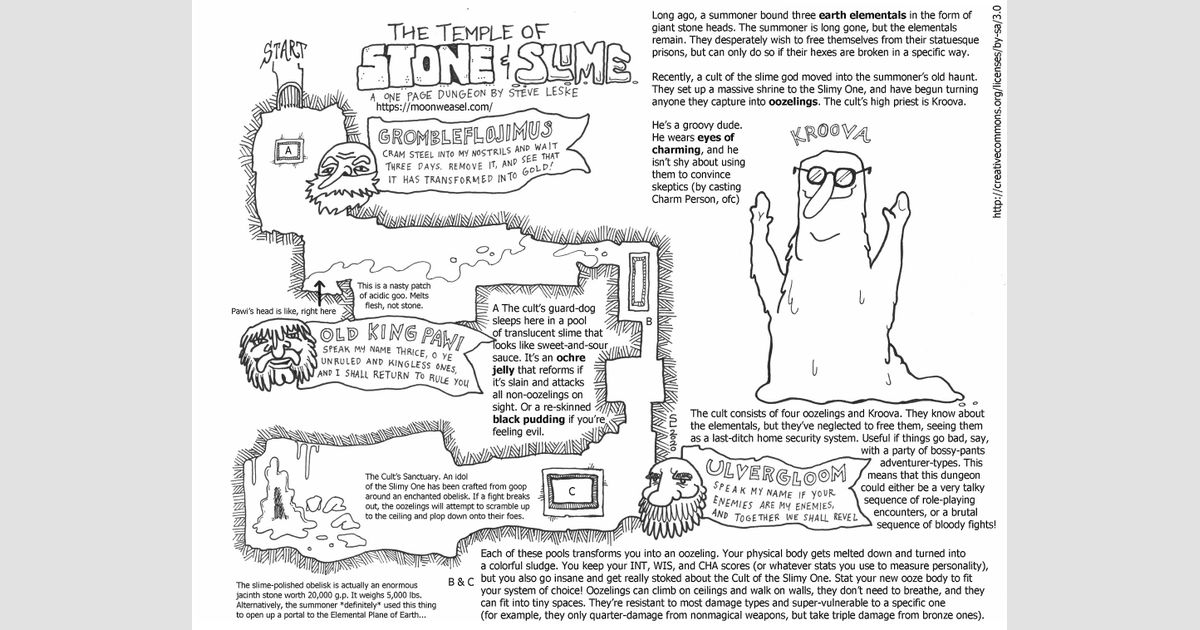 START
THE TEMPLE OF
STONE & SLIME
A ONE PAGE DUNGEON BY STEVE LESKE
https://moonweasel.com/
Long ago, a summoner bound three earth elementals in the form of
giant stone heads. The summoner is long gone, but the elementals
remain. They desperately wish to free themselves from their statuesque
prisons, but can only do so if their hexes are broken in a specific way.
Recently, a cult of the slime god moved into the summoner's old haunt.
They set up a massive shrine to the Slimy One, and have begun turning
anyone they capture into oozelings. The cult's high priest is Kroova.
He's a groovy dude.
He wears eyes of
charming, and he
isn't shy about using
them to convince
skeptics (by casting
Charm Person, ofc)
KROOVA
http://creativecommons.org/licenses/by-sa/3.0
A
GROMBLEFLOJIMUS
CRAM STEEL INTO MY NOSTRILS AND WAIT
THREE DAYS. REMOVE IT, AND SEE THAT
IT HAS TRANSFORMED INTO GOLD!
This is a nasty patch
of acidic goo. Melts
flesh, not stone.
Pawi's head is like, right here
OLD KING PAWI
SPEAK MY NAME THRICE, O YE
UNRULED AND KINGLESS ONES,
AND I SHALL RETURN TO RULE YOU
B
A The cult's guard-dog
sleeps here in a pool
of translucent slime that
looks like sweet-and-sour
sauce. It's an ochre
jelly that reforms if
it's slain and attacks
all non-oozelings on
sight. Or a re-skinned
black pudding if you're
feeling evil.
The cult consists of four oozelings and Kroova. They know about
the elementals, but they've neglected to free them, seeing them
as a last-ditch home security system. Useful if things go bad, say,
with a party of bossy-pants
adventurer-types. This
means that this dungeon
could either be a very talky
sequence of role-playing
encounters, or a brutal
sequence of bloody fights!
ULVERGLOOM
SPEAK MY NAME IF YOUR
ENEMIES ARE MY ENEMIES,
AND TOGETHER WE SHALL REVEL
The Cult's Sanctuary. An idol
of the Slimy One has been crafted from goop
around an enchanted obelisk. If a fight breaks
out, the oozelings will attempt to scramble up
to the ceiling and plop down onto their foes.
C
The slime-polished obelisk is actually an enormous
jacinth stone worth 20,000 g.p. It weighs 5,000 lbs.
Alternatively, the summoner *definitely* used this thing
to open up a portal to the Elemental Plane of Earth...
B & C
Each of these pools transforms you into an oozeling. Your physical body gets melted down and turned into
a colorful sludge. You keep your INT, WIS, and CHA scores (or whatever stats you use to measure personality),
but you also go insane and get really stoked about the Cult of the Slimy One. Stat your new ooze body to fit
your system of choice! Oozelings can climb on ceilings and walk on walls, they don't need to breathe, and they
can fit into tiny spaces. They're resistant to most damage types and super-vulnerable to a specific one
(for example, they only quarter-damage from nonmagical weapons, but take triple damage from bronze ones).